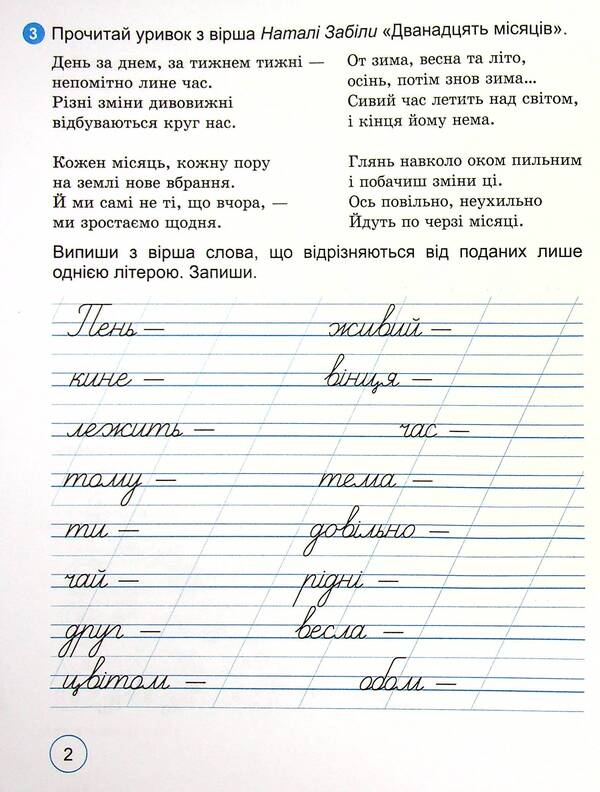 3 Прочитай уривок з вірша Наталі Забіли «Дванадцять місяців».
День за днем, за тижнем тижні —
непомітно лине час.
Різні зміни дивовижні
відбуваються круг нас.
Кожен місяць, кожну пору
на землі нове вбрання.
Й ми самі не ті, що вчора, —
ми зростаємо щодня.
От зима, весна та літо,
осінь, потім знов зима...
Сивий час летить над світом,
і кінця йому нема.
Глянь навколо оком пильним
і побачиш зміни ці.
Ось повільно, неухильно
Йдуть по черзі місяці.
Випиши з вірша слова, що відрізняються від поданих лише
однією літерою. Запиши.
Пень — живий —
кине — вінця —
лежить — час —
тому — тема —
ти — довільно —
чай — рідні —
друг — весла —
цвітом — обом —
2